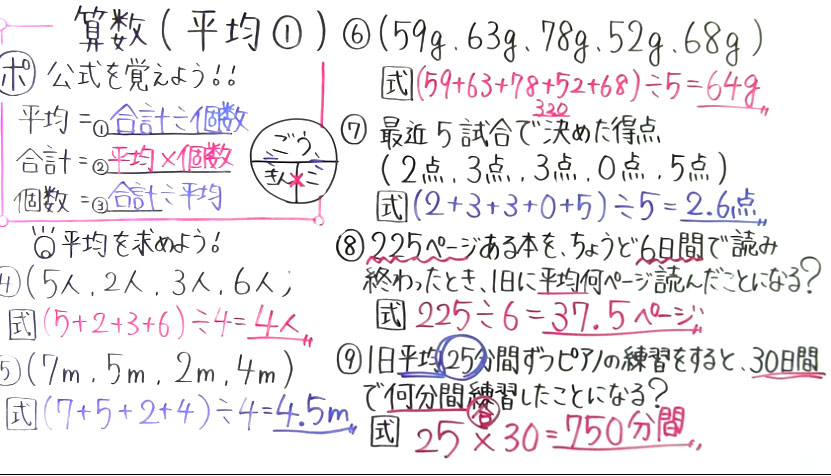 算数(平均①)
ポ 公式を覚えよう!!
平均=①合計÷個数
合計=②平均×個数
個数=③合計÷平均
ごう
きん×こ
平均を求めよう!
④(5人、2人、3人、6人)
式(5+2+3+6)÷4=4人
⑤(7m、5m、2m、4m)
式(7+5+2+4)÷4=4.5m
⑥(59g、63g、78g、52g、68g)
式(59+63+78+52+68)÷5=64g
320
⑦ 最近5試合で決めた得点
(2点、3点、3点、0点、5点)
式(2+3+3+0+5)÷5=2.6点
⑧225ページある本を、ちょうど6日間で読み
終わったとき、1日に平均何ページ読んだことになる?
式 225÷6=37.5ページ
⑨1日平均25分間ずつピアノの練習をすると、30日間
で何分間練習したことになる?
合
式 25×30=750分間